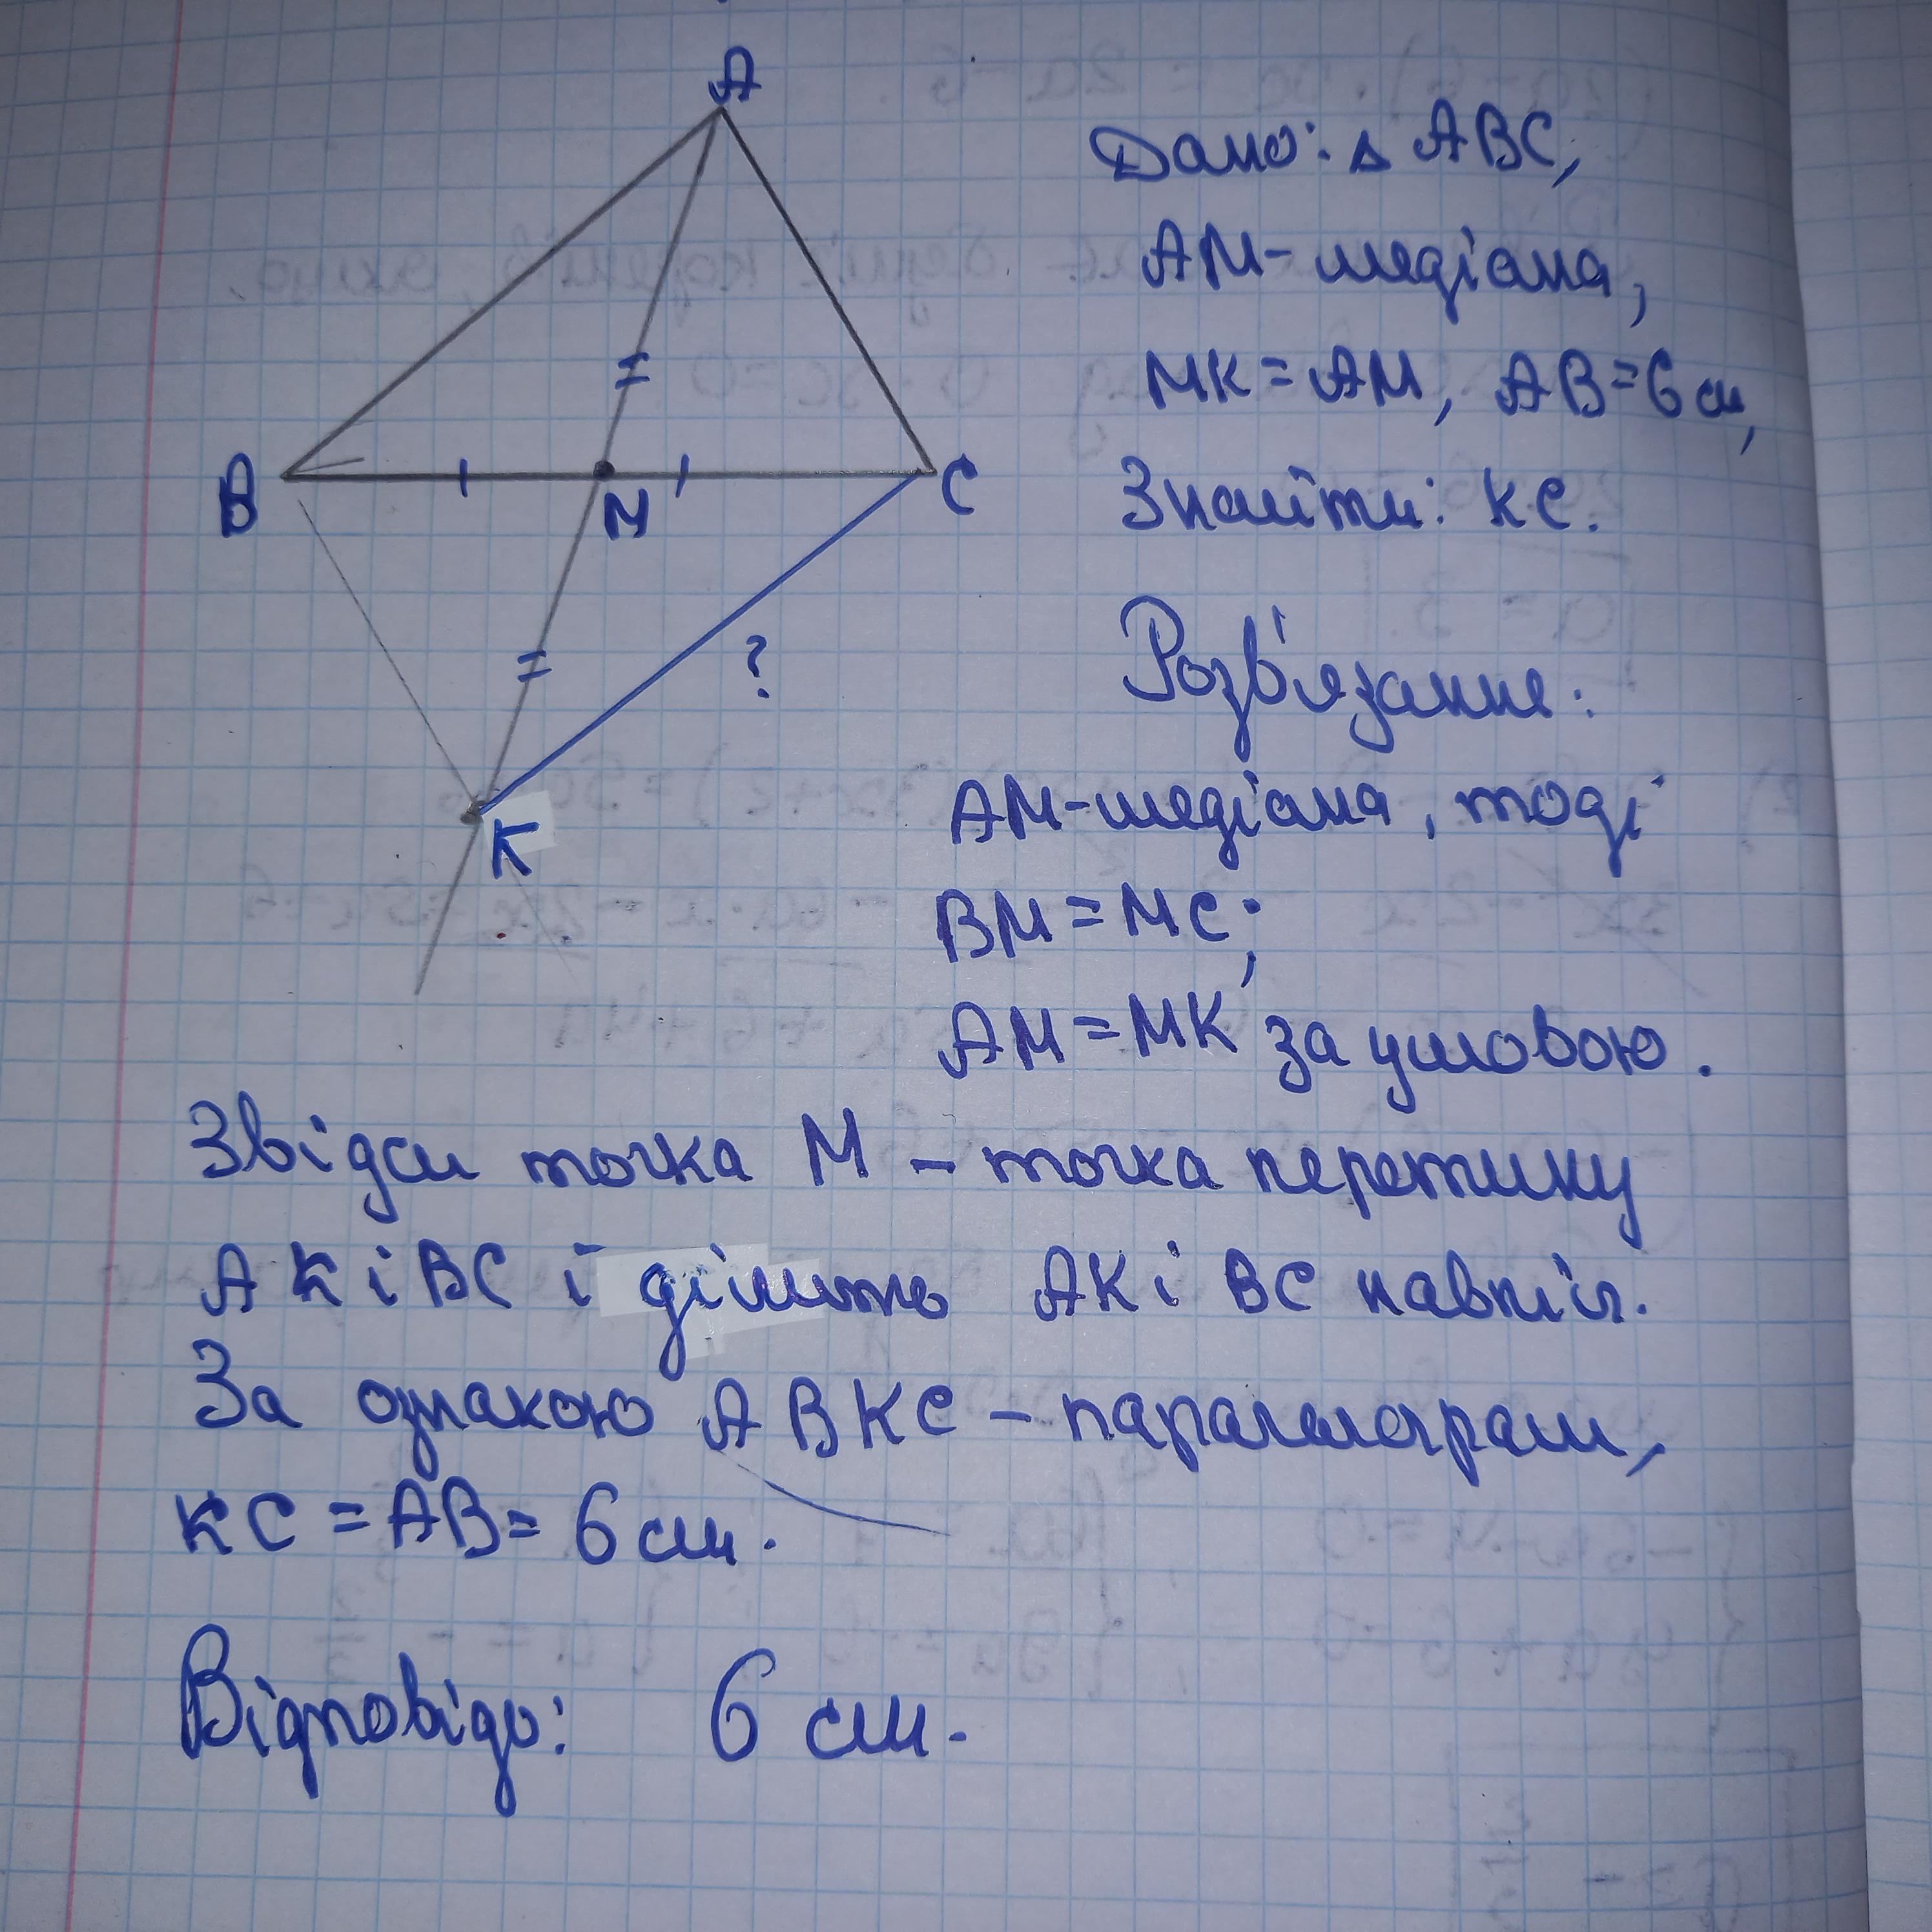 A
B
M
C
?
K
Дано: △ ABC,
AM - медіана,
MK = AM, AB = 6 см,
Знайти: KC.
Розв'язання:
AM - медіана, тоді
BM = MC;
AM = MK за умовою.
Звідси точка M - точка перетину
AK і BC і ділить AK і BC навпіл.
За ознакою ABKC - паралелограм,
KC = AB = 6 см.
Відповідь: 6 см.